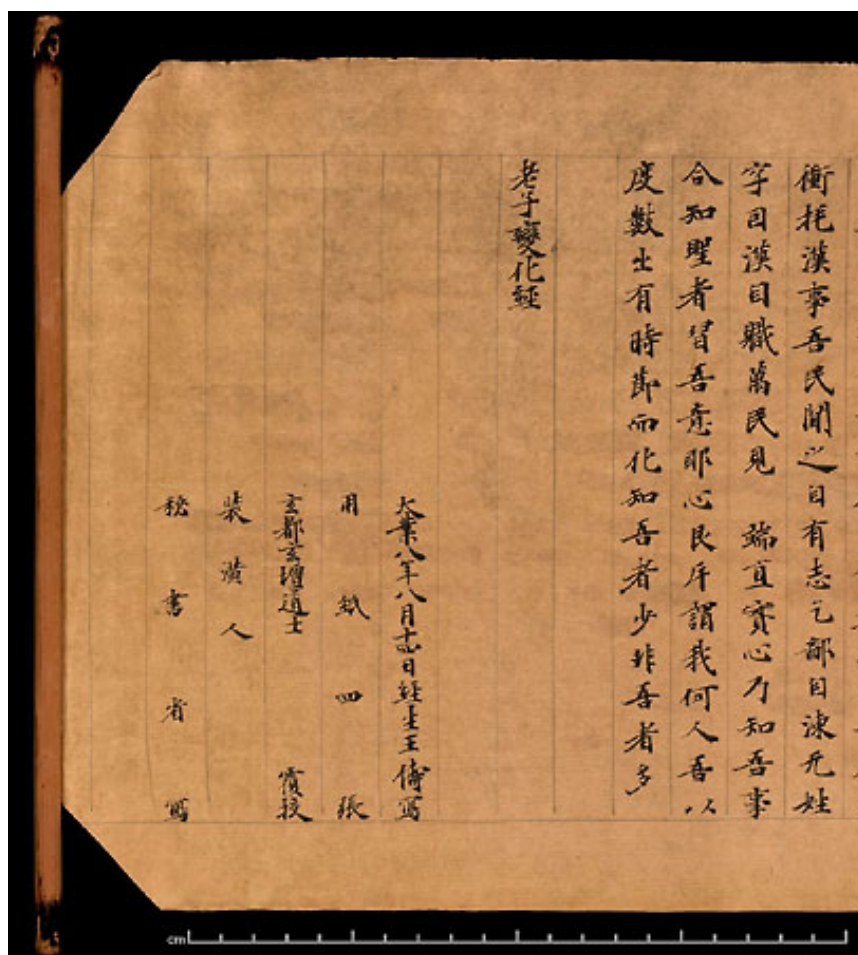 衝扽漢事吾民聞之自有志乞鄙自涑兄姓
字自漢自職萬民見 端直實心乃知吾事
合知聖者習吾意耶心艮斥謂我何人吾以
度數出有時節而化知吾者少非吾者多
老子變化經
大業八年八月十四日經生王儔寫
用紙四張
玄都玄壇道士 覆校
裝潢人
秘書省寫
cm